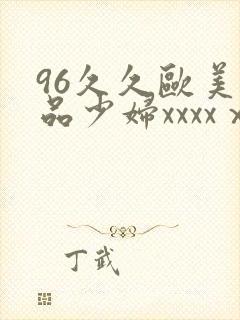 96久久欧美
品少婦xxxx x
丁武